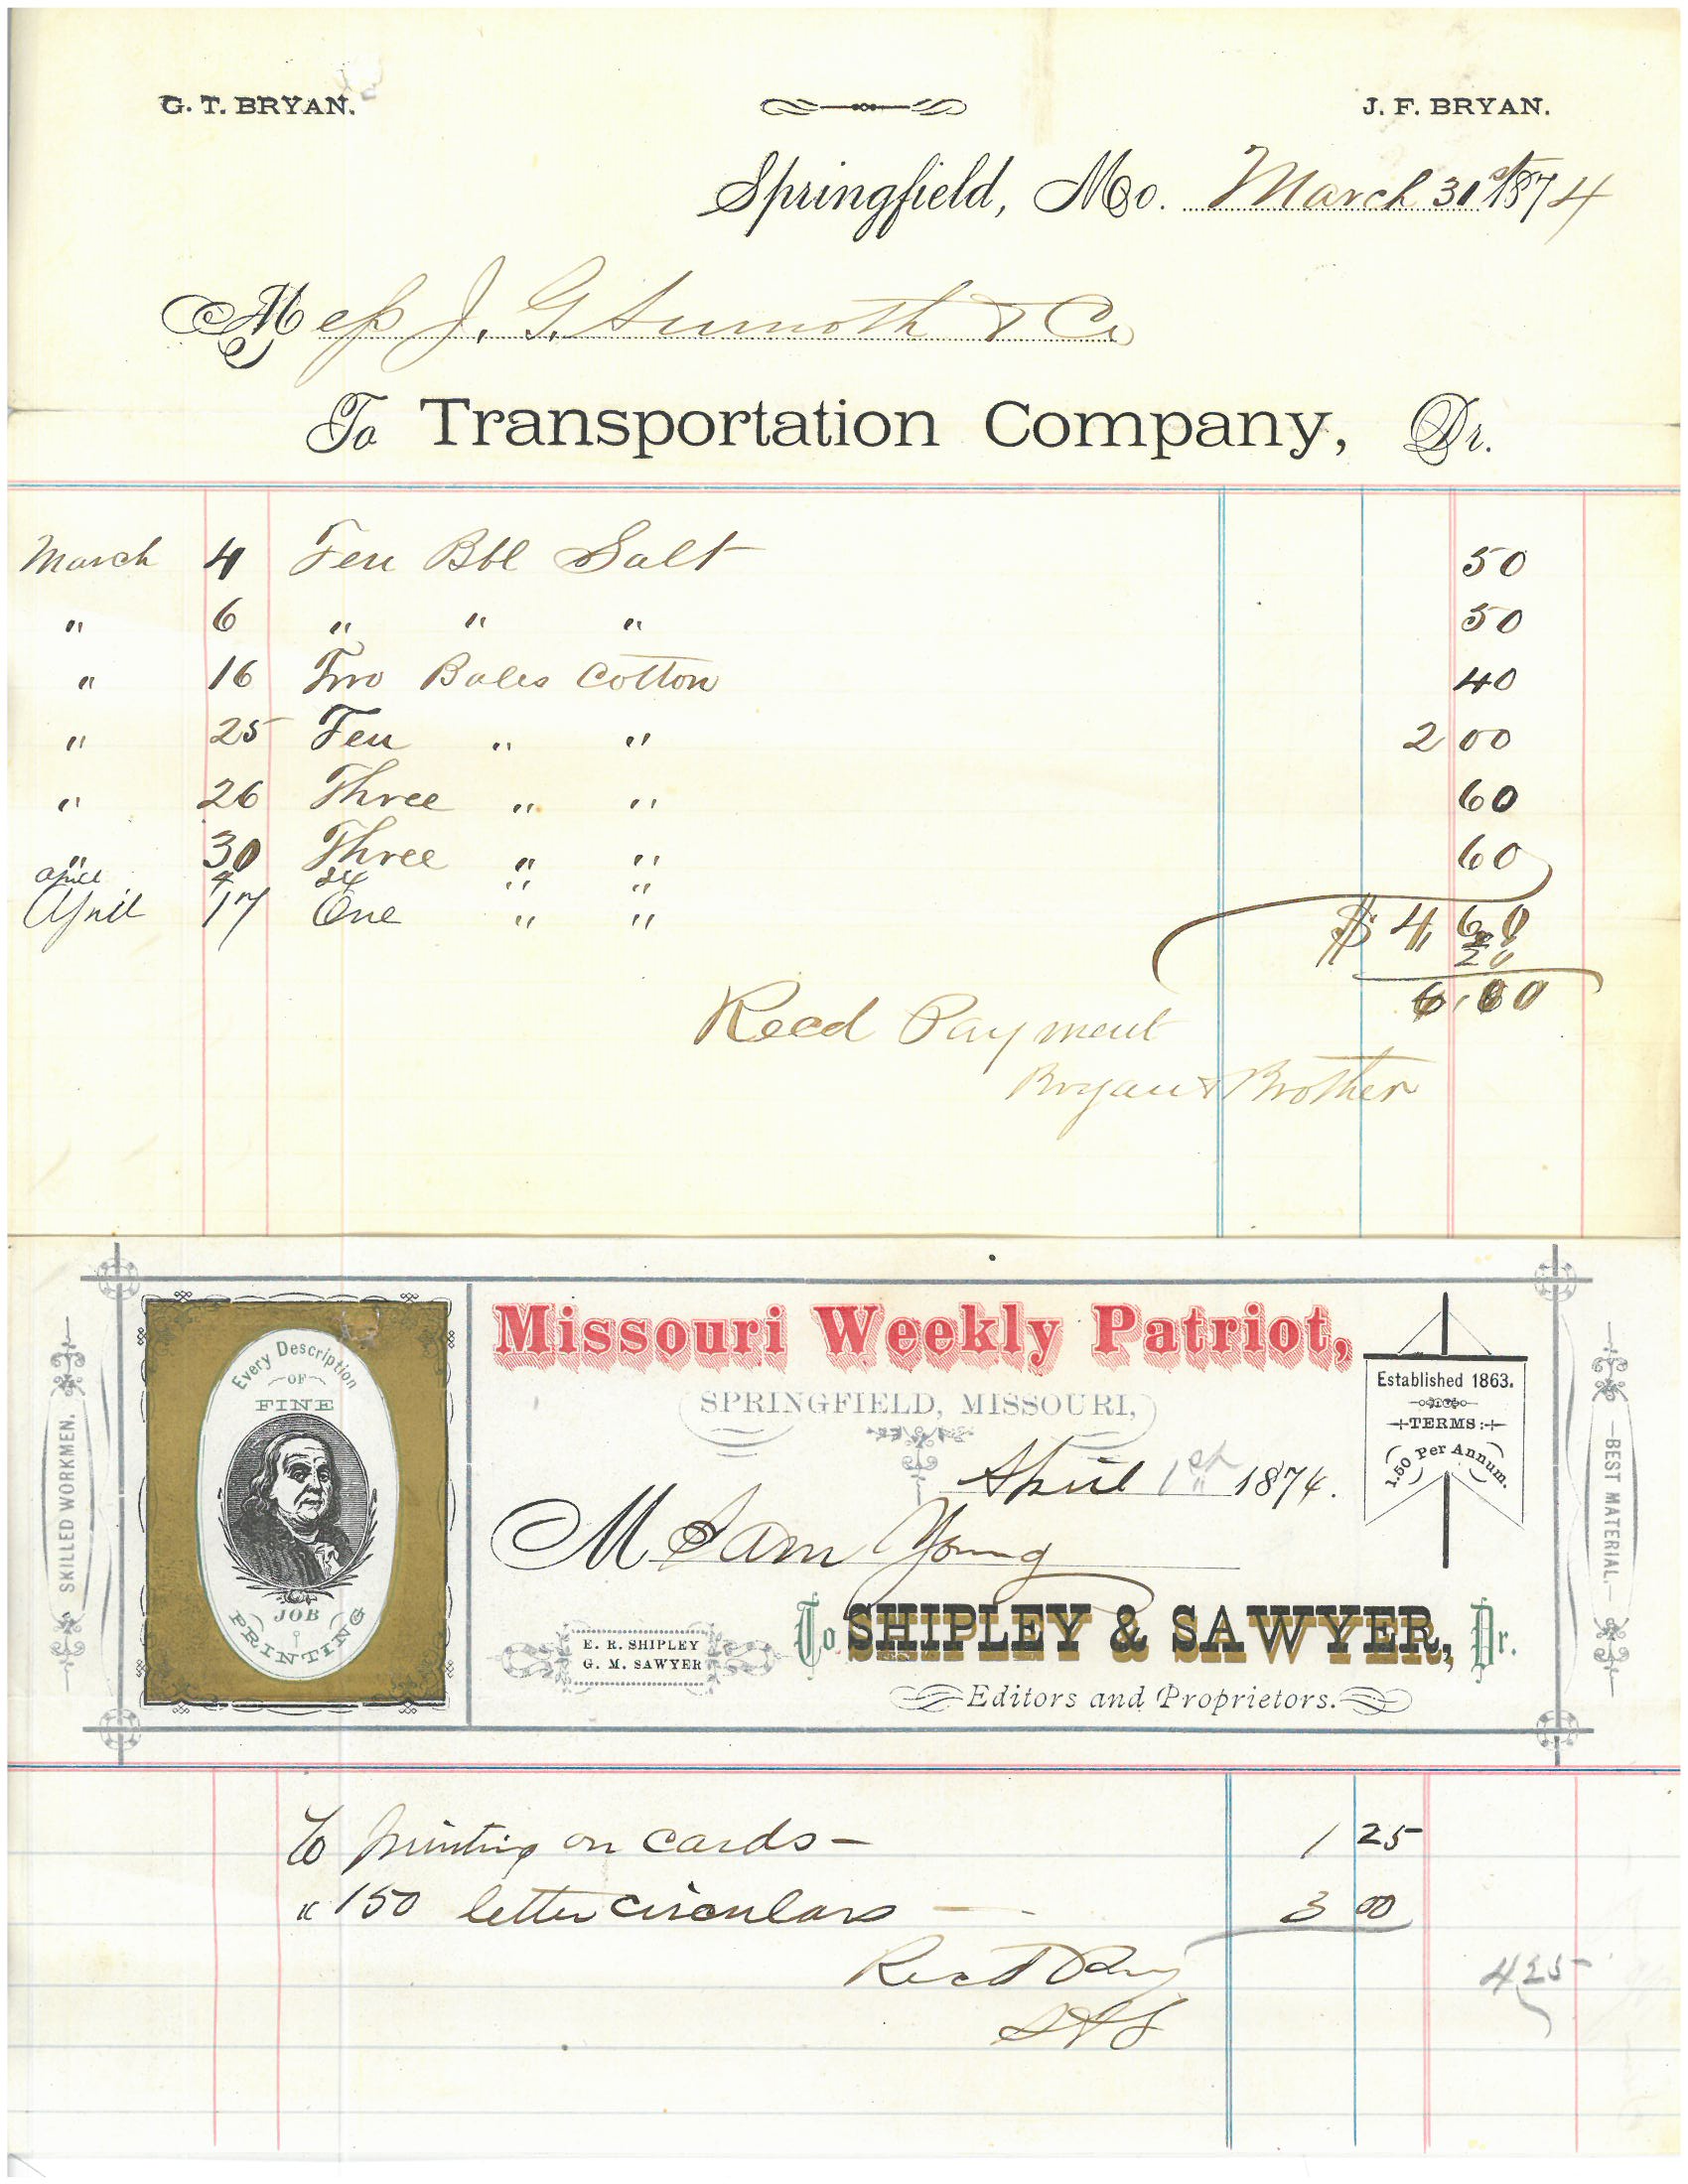 G. T. BRYAN. J. F. BRYAN.
Springfield, Mo. March 31st 1874
Mess J. G. & Co
To Transportation Company, Dr.
March 4 Ten Bbl Salt 50
" 6 " " " 50
" 16 Two Bales Cotton 40
" 25 Ten " " 2 00
" 26 Three " " 60
" 30 Three " " 60
April 4 " "
April 17 One " " $ 4 60
20
Recd Payment
Bryan & Brother
Missouri Weekly Patriot,
SPRINGFIELD, MISSOURI,
Established 1863.
TERMS:
1.50 Per Annum.
Every Description
OF
FINE
JOB
PRINTING
SKILLED WORKMEN.
BEST MATERIAL.
April 1st 1874.
M Sam Young
E. R. SHIPLEY
G. M. SAWYER
To SHIPLEY & SAWYER, Dr.
Editors and Proprietors.
To printing on cards — 1 25
" 150 letter circulars — 3 00
Recd Pay
4 25
S & S